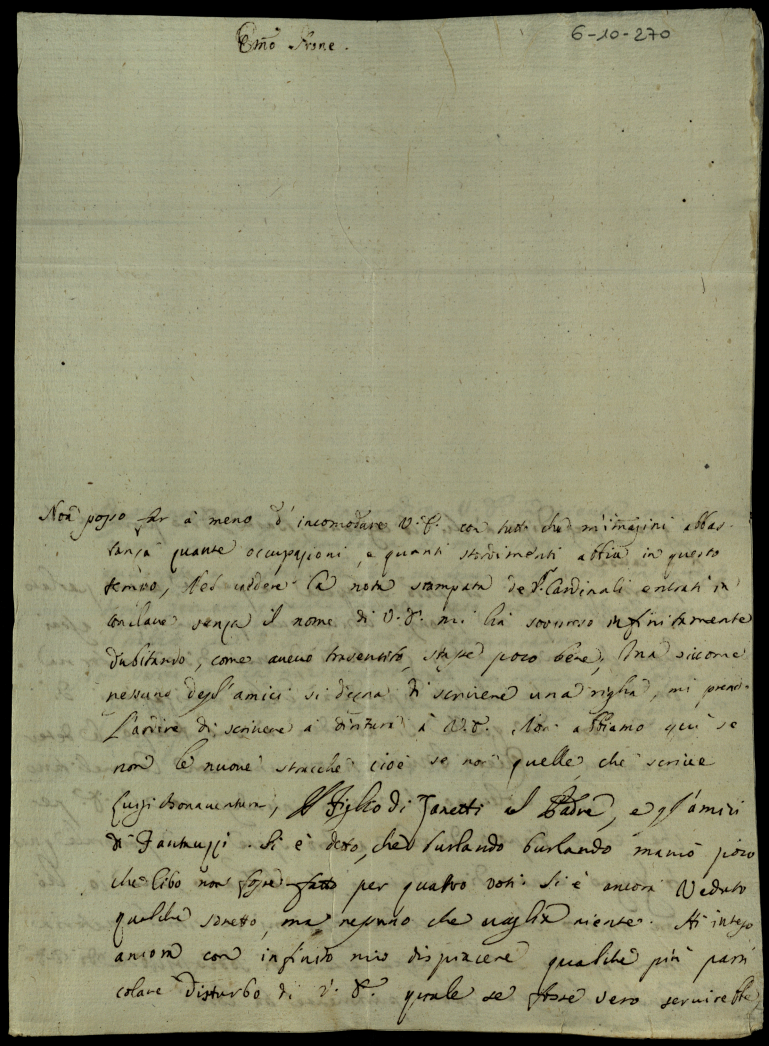 Emo Prone.
6-10-270
Non posso far à meno d'incomodare V.E. con tutto che m'imagini abbas-
tanza quante occupazioni, e quanti stordimenti abbia in questo
tempo, Nel vedere la nota stampata de S. Cardinali entrati in
Conclave senza il nome di V.E. mi hà sorpreso infinitamente
dubitando, come avevo trasentito, stasse poco bene, Mà siccome
nessuno degl'amici si degna di scrivere una righa, mi prendo
L'ardire di scrivere à dirittura à V.E. Noi abbiamo qui se
non le nuove stracche cioè se non quelle che scrive
Luigi Bonaventura, Il Figlio di Zanetti al Padre, e gl'amici
di Fantuzzi. Si è detto, che burlando burlando mancò poco
che Cibo non fosse fatto per quattro voti. Si è ancora veduto
qualche sonetto, ma nessuno che vaglia niente. Hò inteso
ancora con infinito mio dispiacere qualche più parti
colare disturbo di V.E. quale se fosse vero servirebbe